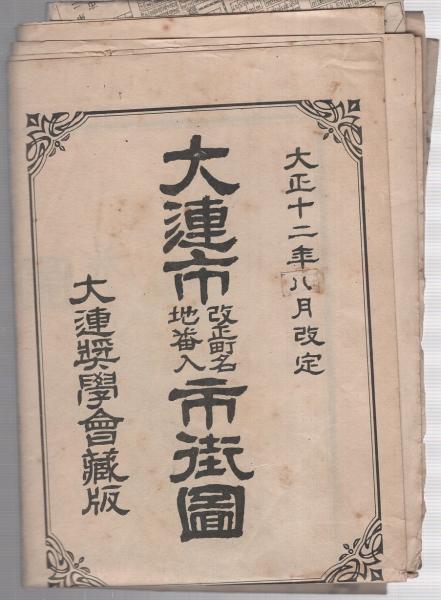 大正十二年八月改定
大連市改正町名地番入市街圖
大連奨學會藏版